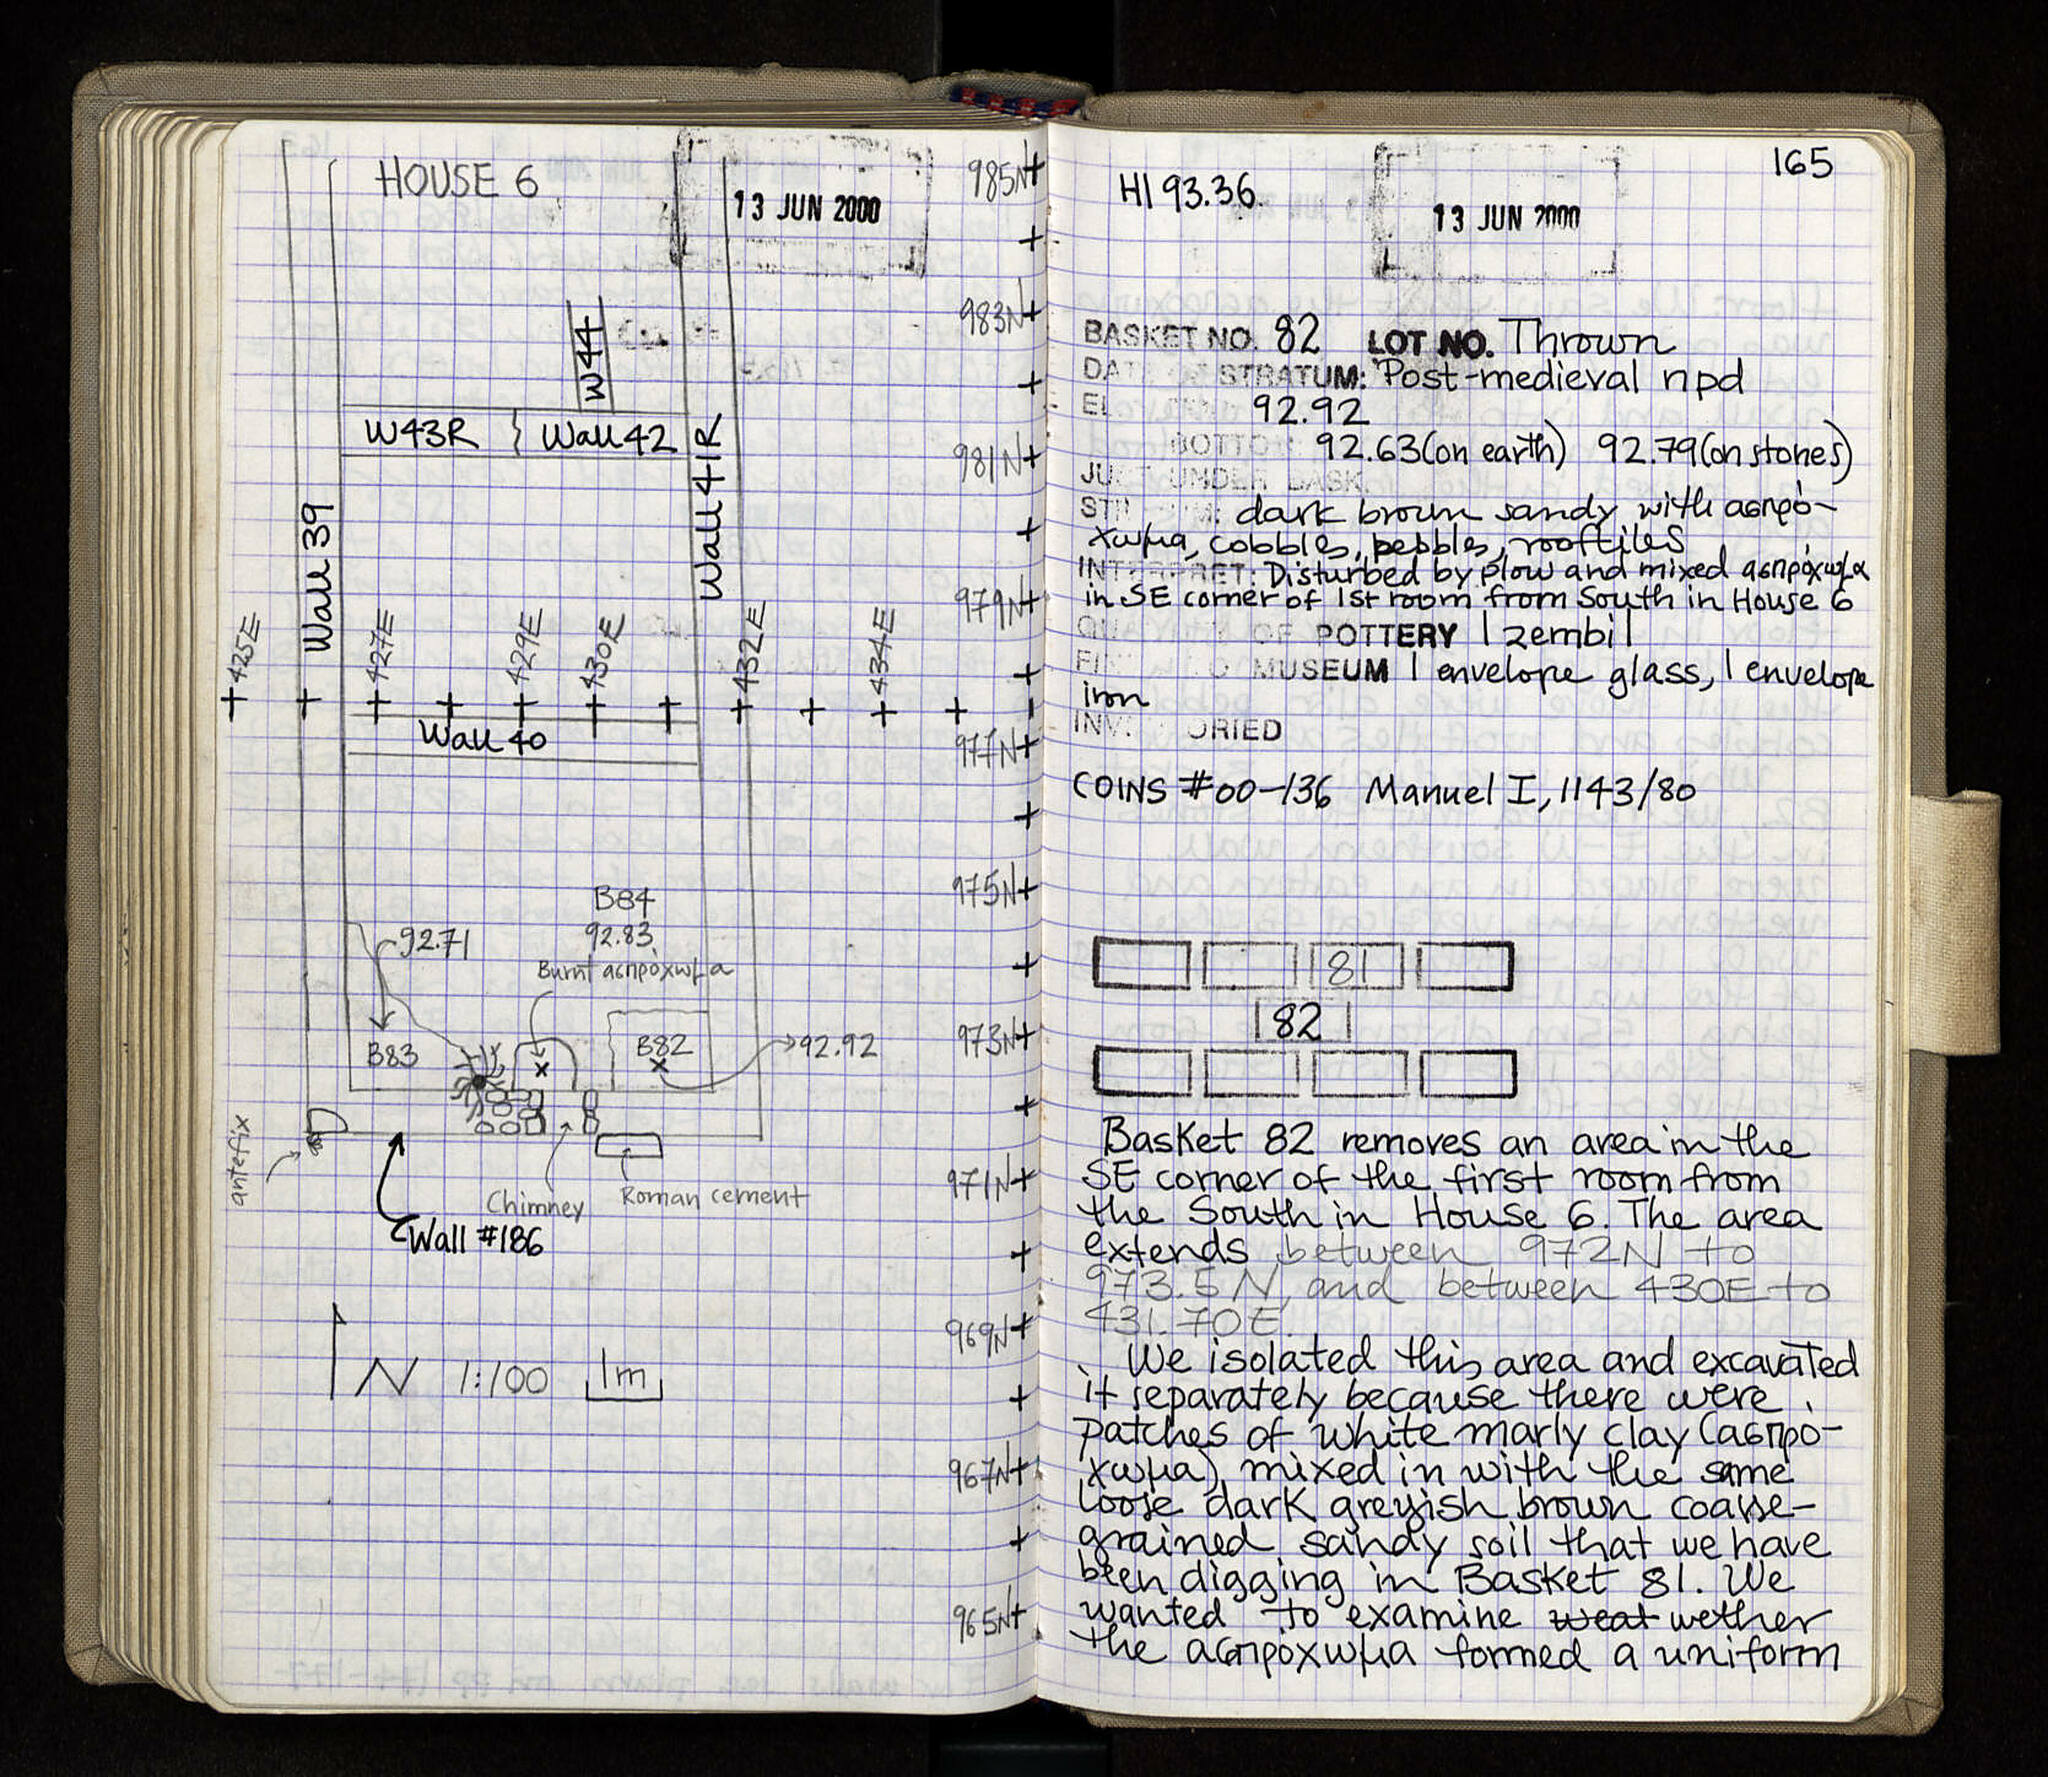 HOUSE 6
13 JUN 2000
985N
983N
W44
W43R
Wall 42
981N
Wall 41R
Wall 39
979N
425E
427E
429E
430E
432E
434E
Wall 40
977N
975N
B84
92.83
92.71
Burnt ασπρόχωμα
B83
B82
92.92
973N
antefix
Chimney
Roman cement
971N
Wall #186
969N
N 1:100 1m
967N
965N
165
HI 93.36.
13 JUN 2000
BASKET NO. 82 LOT NO. Thrown
DATE OF STRATUM: Post-medieval npd
EL 92.92
BOTTOM: 92.63 (on earth) 92.79 (on stones)
JUST UNDER BASK.
STRATUM: dark brown sandy with ασπρό-
χωμα, cobbles, pebbles, rooftiles
INTERPRET: Disturbed by plow and mixed ασπρόχωμα
in SE corner of 1st room from South in House 6
QUANTITY OF POTTERY 1 zembil
FINDS TO MUSEUM 1 envelope glass, 1 envelope
iron
INVENTORIED
COINS #00-136 Manuel I, 1143/80
81
82
Basket 82 removes an area in the
SE corner of the first room from
the South in House 6. The area
extends between 972N to
973.5N, and between 430E to
431.70E.
We isolated this area and excavated
it separately because there were
patches of white marly clay (ασπρό-
χωμα), mixed in with the same
loose dark greyish brown coarse-
grained sandy soil that we have
been digging in Basket 81. We
wanted to examine weat wether
the ασπρόχωμα formed a uniform